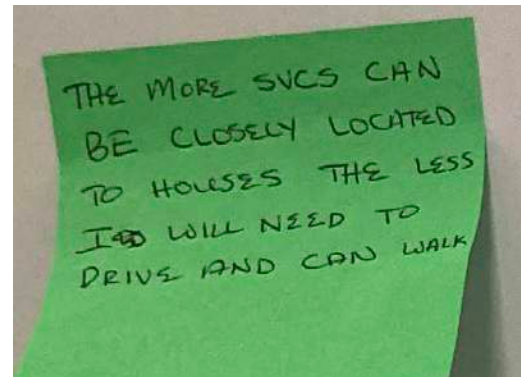 THE MORE SVCS CAN
BE CLOSELY LOCATED
TO HOUSES THE LESS
I WILL NEED TO
DRIVE AND CAN WALK